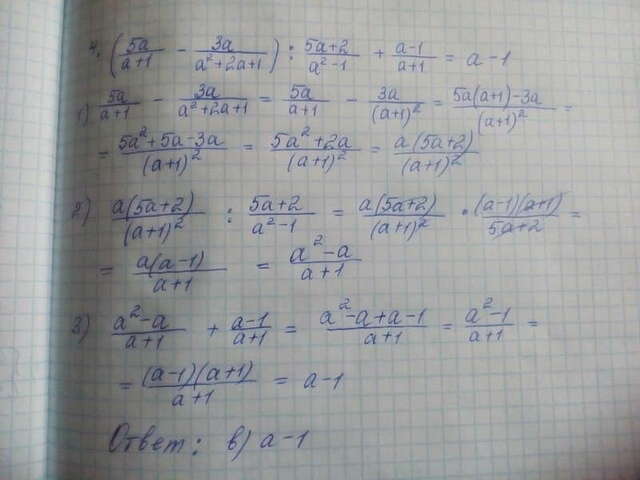 4. (5a/(a+1) - 3a/(a²+2a+1)) : (5a+2)/(a²-1) + (a-1)/(a+1) = a-1
1) 5a/(a+1) - 3a/(a²+2a+1) = 5a/(a+1) - 3a/(a+1)² = (5a(a+1)-3a)/(a+1)² =
= (5a²+5a-3a)/(a+1)² = (5a²+2a)/(a+1)² = a(5a+2)/(a+1)²
2) a(5a+2)/(a+1)² : (5a+2)/(a²-1) = a(5a+2)/(a+1)² · (a-1)(a+1)/(5a+2) =
= a(a-1)/(a+1) = (a²-a)/(a+1)
3) (a²-a)/(a+1) + (a-1)/(a+1) = (a²-a+a-1)/(a+1) = (a²-1)/(a+1) =
= (a-1)(a+1)/(a+1) = a-1
Ответ: в) a-1